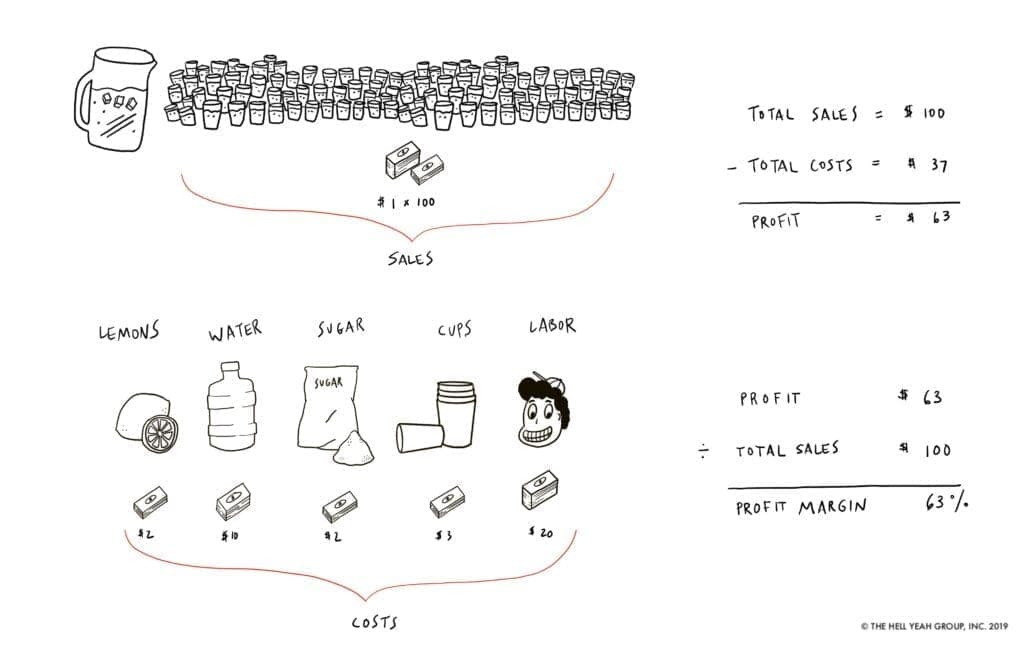 $1 x 100
SALES
TOTAL SALES = $ 100
- TOTAL COSTS = $ 37
PROFIT = $ 63
LEMONS WATER SUGAR CUPS LABOR
SUGAR
$2 $10 $2 $3 $20
COSTS
PROFIT $ 63
÷ TOTAL SALES $ 100
PROFIT MARGIN 63%
© THE HELL YEAH GROUP, INC. 2019